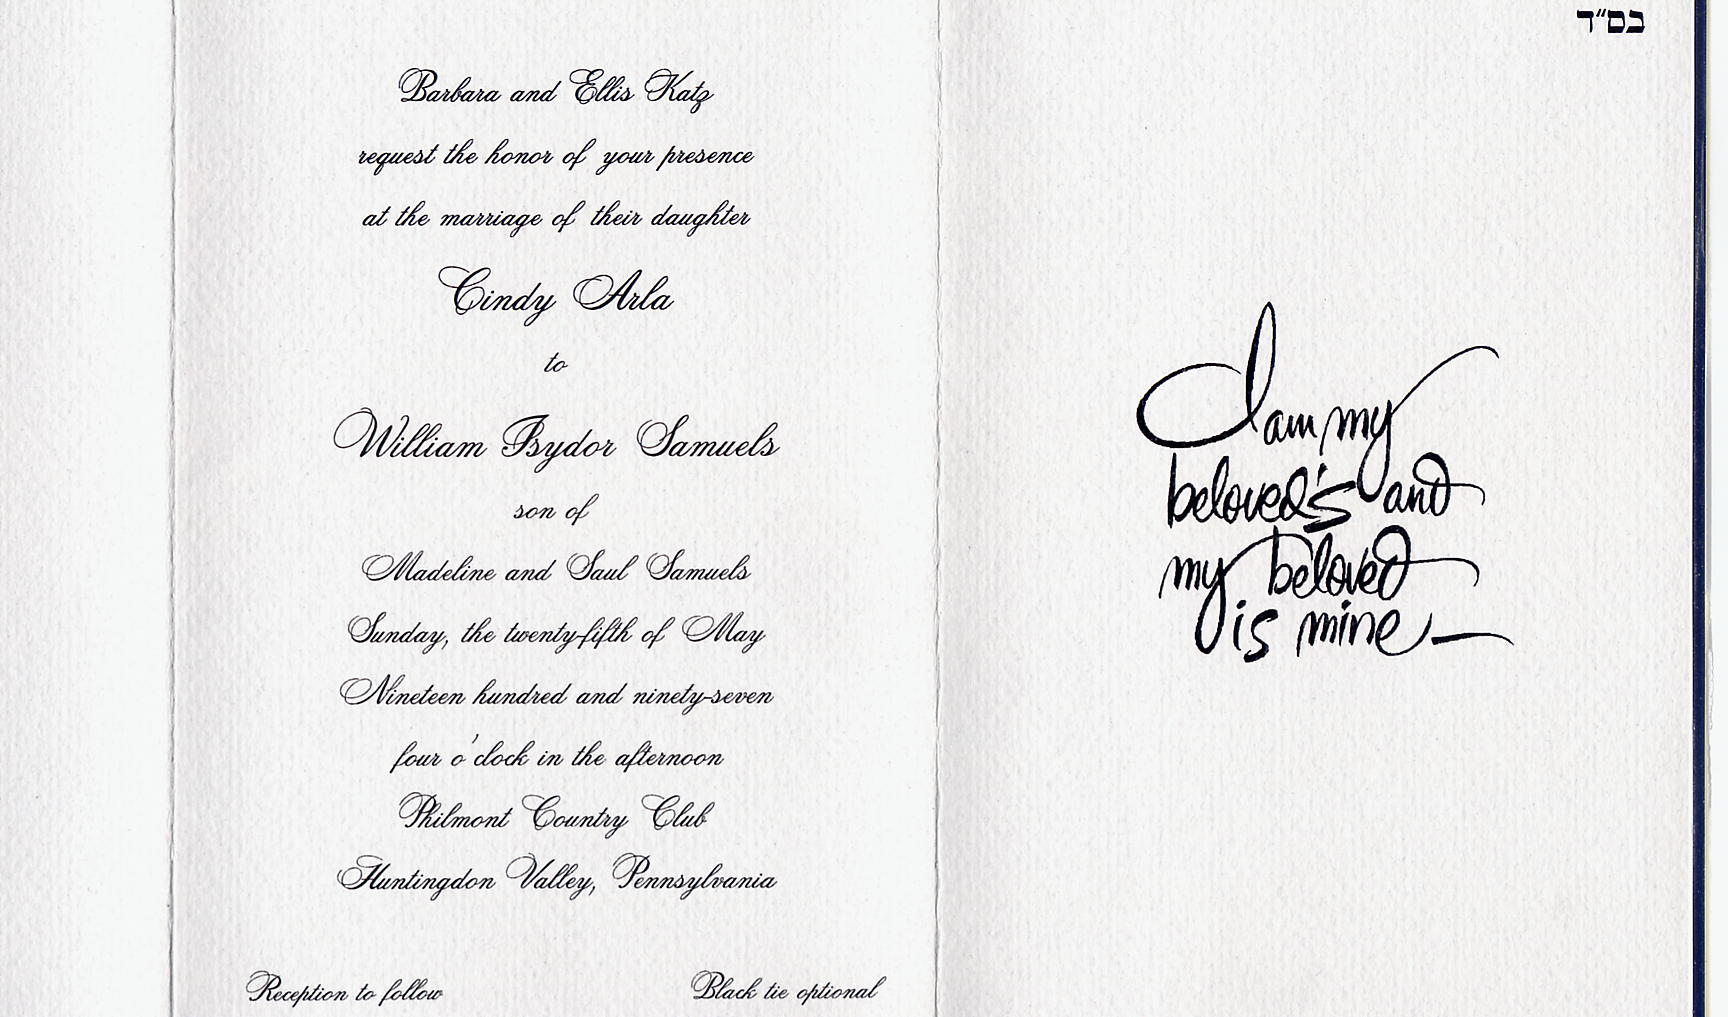 Barbara and Ellis Katz
request the honor of your presence
at the marriage of their daughter
Cindy Arla
to
William Isydor Samuels
son of
Madeline and Saul Samuels
Sunday, the twenty-fifth of May
Nineteen hundred and ninety-seven
four o'clock in the afternoon
Philmont Country Club
Huntingdon Valley, Pennsylvania
Reception to follow
Black tie optional
בס״ד
I am my
beloved's and
my beloved
is mine